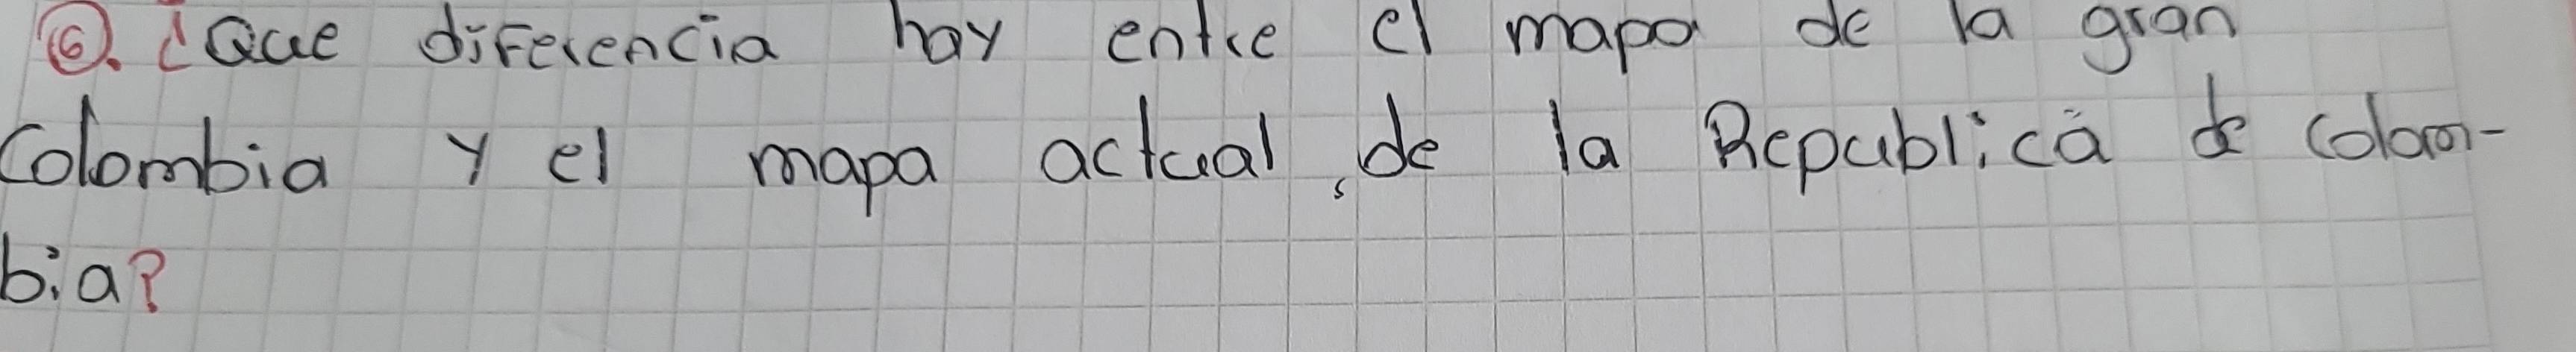 ⑥. ¿Que diferencia hay entre el mapa de la gran
Colombia y el mapa actual, de la Republica de Colom-
bia?